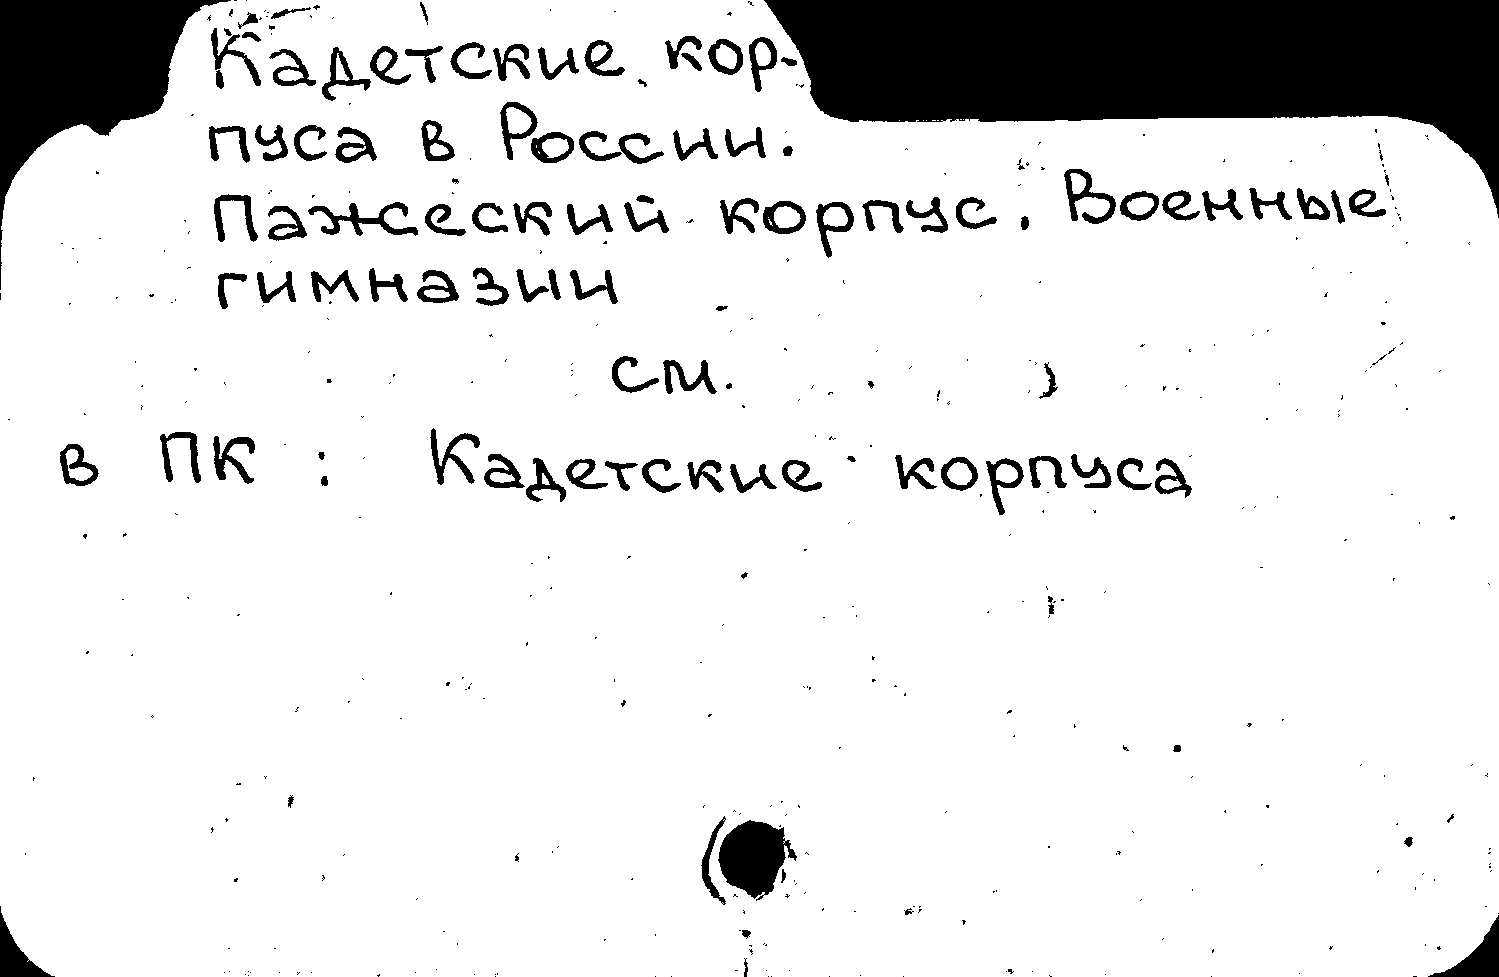 Кадетские кор-
пуса в России.
Пажеский корпус. Военные
гимназии
см.
в ПК : Кадетские корпуса